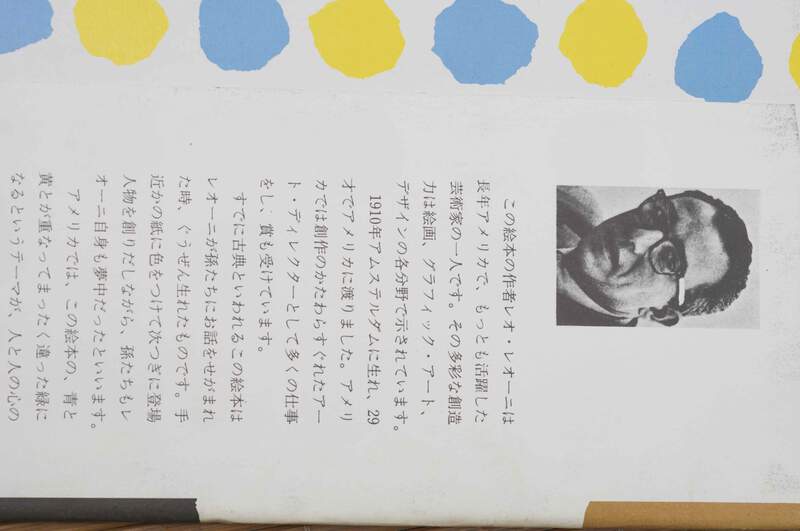 この絵本の作者レオ・レオーニは
長年アメリカで、もっとも活躍した
芸術家の一人です。その多彩な創造
力は絵画、グラフィック・アート、
デザインの各分野で示されています。
1910年アムステルダムに生れ、29
才でアメリカに渡りました。アメリ
カでは創作のかたわらすぐれたアー
ト・ディレクターとして多くの仕事
をし、賞も受けています。
すでに古典といわれるこの絵本は
レオーニが孫たちにお話をせがまれ
た時、ぐうぜん生れたものです。手
近かの紙に色をつけて次つぎに登場
人物を創りだしながら、孫たちもレ
オーニ自身も夢中だったといいます。
アメリカでは、この絵本の、青と
黄とが重なってまったく違った緑に
なるというテーマが、人と人の心の